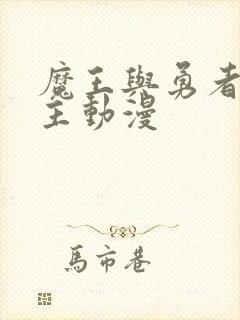 魔王與勇者
主動漫
馬市巷